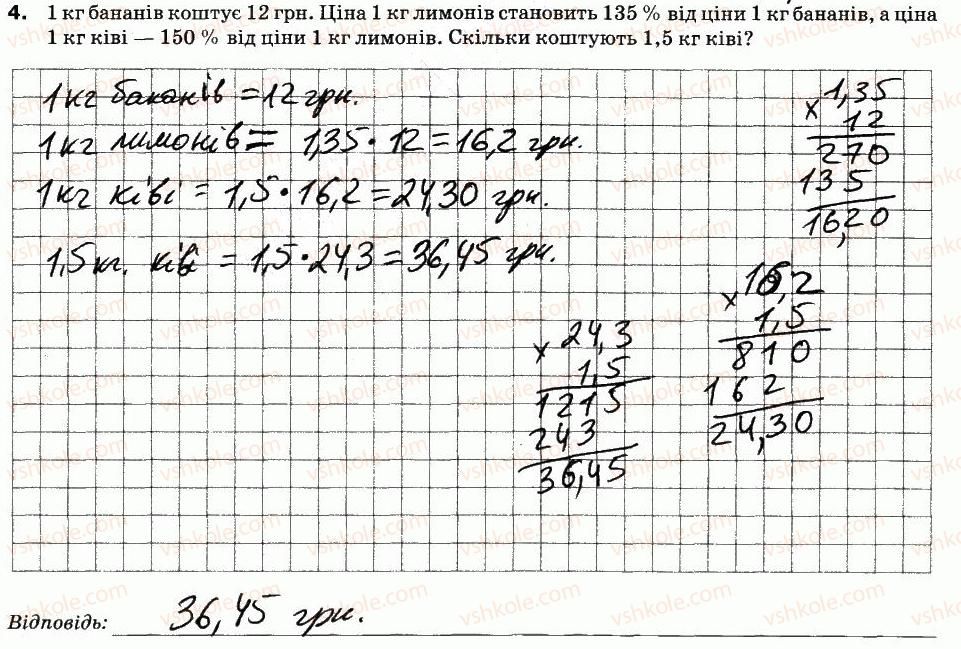 4. 1 кг бананів коштує 12 грн. Ціна 1 кг лимонів становить 135 % від ціни 1 кг бананів, а ціна
1 кг ківі — 150 % від ціни 1 кг лимонів. Скільки коштують 1,5 кг ківі?
1 кг бананів = 12 грн.
1 кг лимонів = 1,35 · 12 = 16,2 грн.
1 кг ківі = 1,5 · 16,2 = 24,30 грн.
1,5 кг. ківі = 1,5 · 24,3 = 36,45 грн.
1,35
× 12
270
135
16,20
16,2
× 1,5
810
162
24,30
24,3
× 1,5
1215
243
36,45
Відповідь: 36,45 грн.
vshkole.com